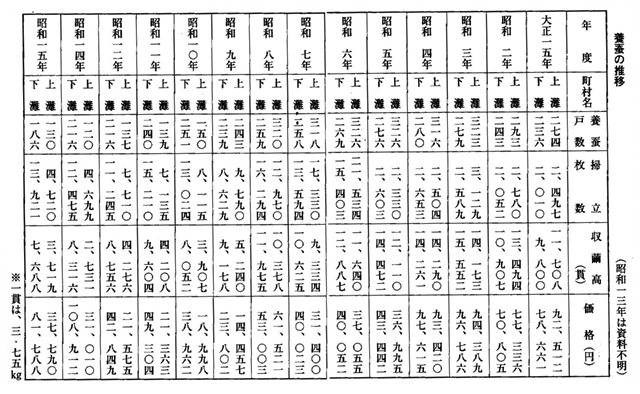 養蚕の推移 (昭和一三年は資料不明)
年度 町村名 養蚕戸数 掃立枚数 収繭高(貫) 価格(円)
大正一五年 上灘 二七四 二、四九七 一一、七〇八 九二、五一二
下灘 二三六 二、〇一〇 九、八〇〇 七八、六六一
昭和二年 上灘 二九三 二、七八〇 一三、四九四 七七、三三六
下灘 二、〇五二
昭和三年 上灘 三二三 三、一二九 一四、一七三 九四、三八九
下灘 二七九 二、五八九 一五、五五二 九六、七八六
昭和四年 上灘 三一六 二、五〇四 一四、二九〇 九三、三四〇
下灘 二八〇 二、六五三 一四、二六一 九三、六一五
昭和五年 上灘 三二六 二、三三〇 一二、一一〇 三六、九九五
下灘 二七六 二、六〇三 一四、四四二
昭和六年 上灘 三二六 二一、五三四 一一、六四〇
下灘 二六九 一五、四〇三 一二、八八七 四〇、〇五二
昭和七年 上灘 三一八 一七、三三〇 九、三三四 三一、四〇〇
下灘 二五八 一三、五九四
昭和八年 上灘 三二〇 一六、二七〇 一〇、三七八
下灘 二五九 一二、九七四 一一、九七五 五三、〇〇三
昭和九年 上灘 二四三 九、七九〇 五、二四〇 一四、四五七
下灘 二三九 八、六二九 九、一七八 二三、八〇二
昭和一〇年 上灘 一五〇 八、一一五 三、九〇七 一八、七九八
下灘 二五一 一三、〇二四 八、〇五二 三八、九六六
昭和一一年 上灘 一三九 七、一三五 四、二〇八 二一、三六三
下灘 二四〇 一五、二一〇 九、六〇四 四九、三〇四
昭和一二年 上灘 一三七 七、一七〇 四、二七六 二一、五七五
下灘 二一六 一一、二四五 八、七五六 四二、八四九
昭和一四年 上灘 一二〇 四、六九九 二、七三一 三一、〇一〇
下灘 二一六 一二、四七五 八、三一六 一〇八、九一二
昭和一五年 上灘 一三〇 四、七二〇 三、七一九 三七、七九〇
下灘 一八六 一三、九二一 七、六八八 八一、七八八
※一貫は、三・七五kg